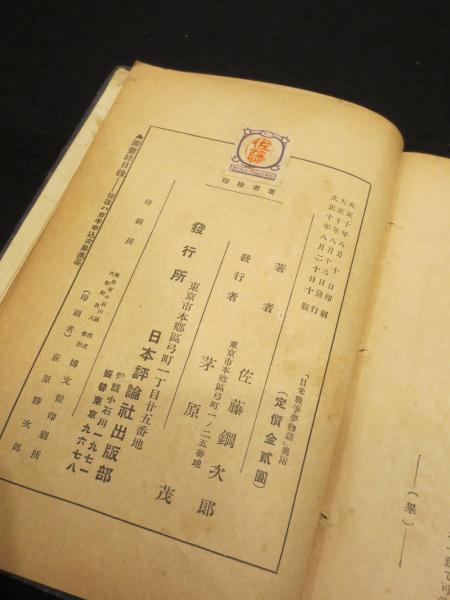 「日米戰爭夢物語」奥附
(定價金貳圓)
大正十年八月十日印刷
大正十年八月十三日發行
大正十年八月二十日十版
著者 佐藤鋼次郎
東京市本鄉區弓町一ノ二五番地
發行者 茅原茂
東京市本鄉區弓町一丁目廿五番地
發行所 日本評論社出版部
電話小石川一九七一
振替東京九六七八
印刷所 博文館印刷所
(印刷者) 荻原勝次郎
佐藤
著者檢印
▲圖書總目錄
(畢)